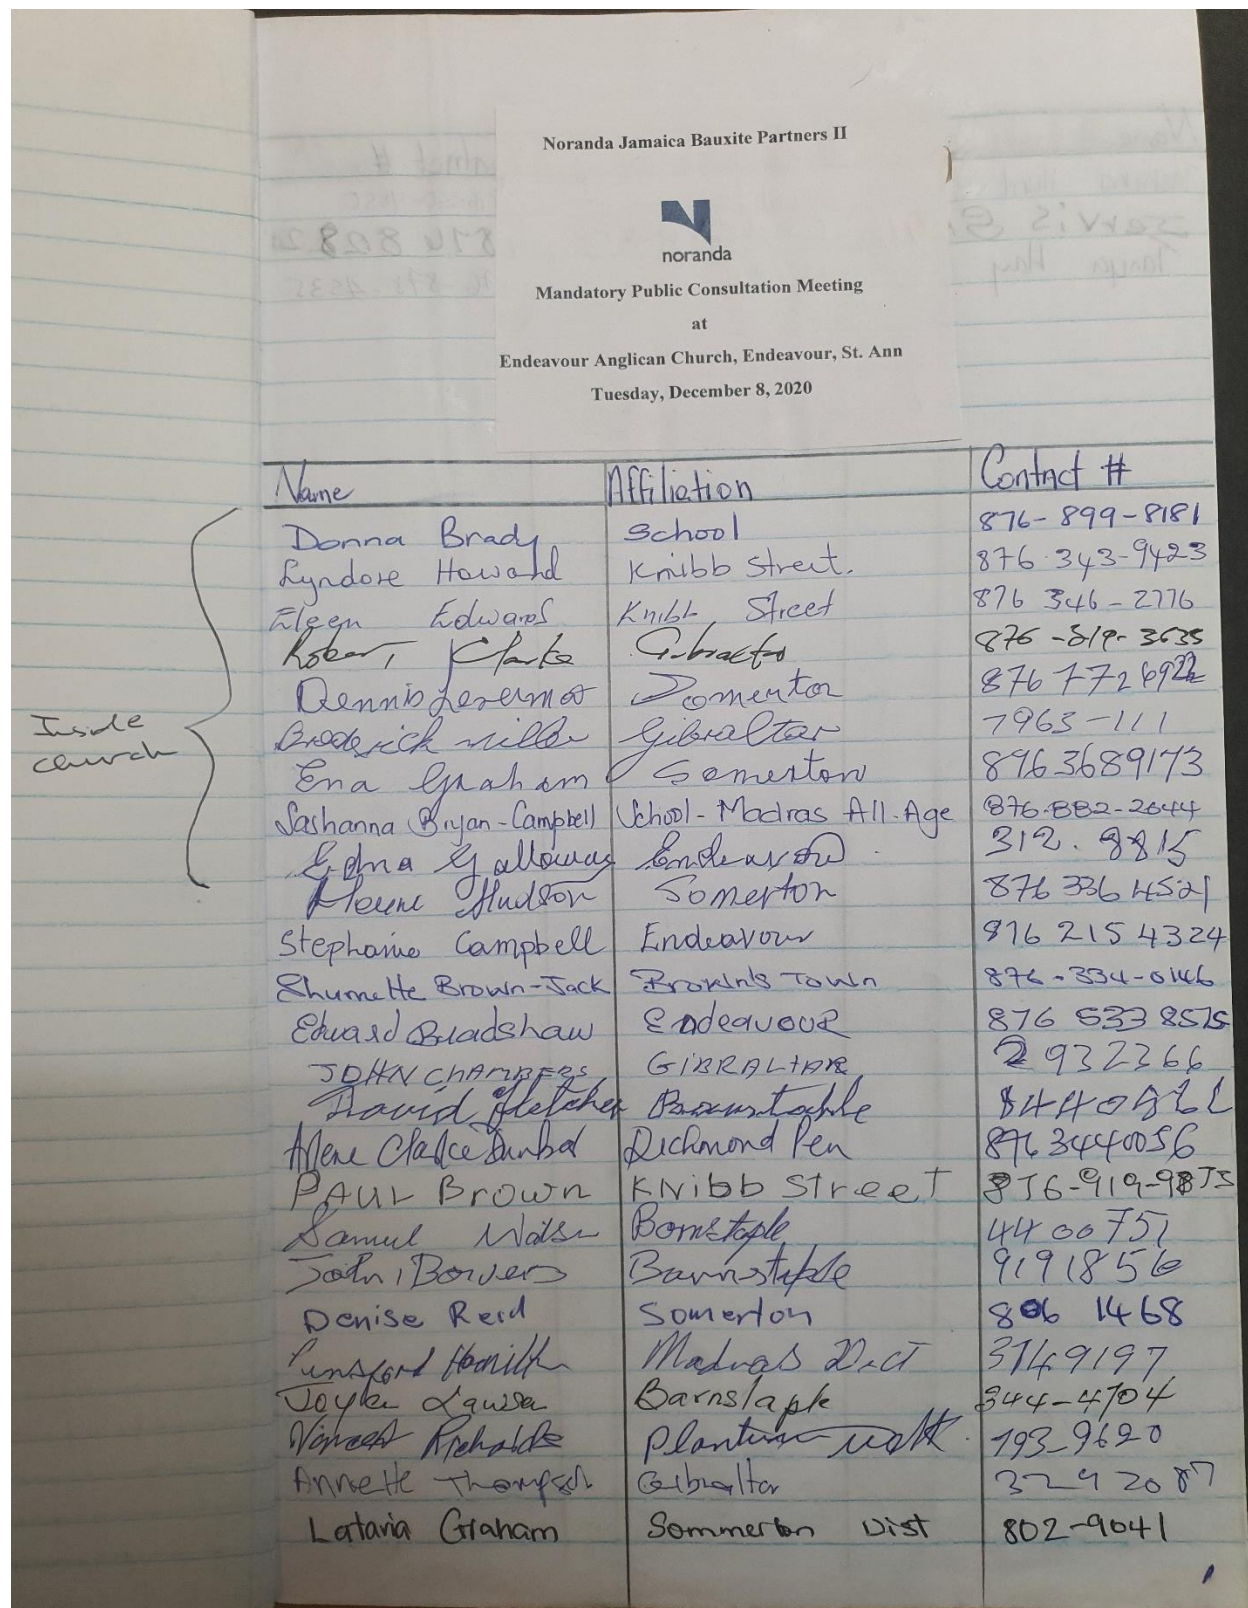 Noranda Jamaica Bauxite Partners II
noranda
Mandatory Public Consultation Meeting
at
Endeavour Anglican Church, Endeavour, St. Ann
Tuesday, December 8, 2020
Name Affiliation Contact #
Donna Brady School 876-899-8181
Lyndore Howard Knibb Street. 876 343-9423
Eleen Edwards Knibb Street 876 346-2776
Robert Clarke Gibraltar 876-819-3635
Dennis Somerton 876 772 6922
Inside
church
Broderick Miller Gibraltar 7963-111
Ena Graham Somerton 8763689173
Sashanna Bryan-Campbell School-Madras All-Age 876-882-2644
Edna Galloway Endeavour 312.8815
Hudson Somerton 876 336 4521
Stephanie Campbell Endeavour 876 215 4324
Shumette Brown-Jack Brown's Town 876-334-0146
Edward Bradshaw Endeavour 876 533 8575
JOHN CHAMBERS GIBRALTAR 2932366
David Fletcher Barnstable
Arlene Clarke Dunbar Richmond Pen 8763440056
PAUL Brown KNibb Street 876-919-9875
Samuel 4400751
John Bowers Barnstaple 9191856
Denise Reid Somerton 806 1468
Madras Dict 3749197
Barnstaple 344-4704
Vincent Richards 793-9620
Annette Thompson Gibraltar 3292087
Latavia Graham Sommerton Dist 802-9041